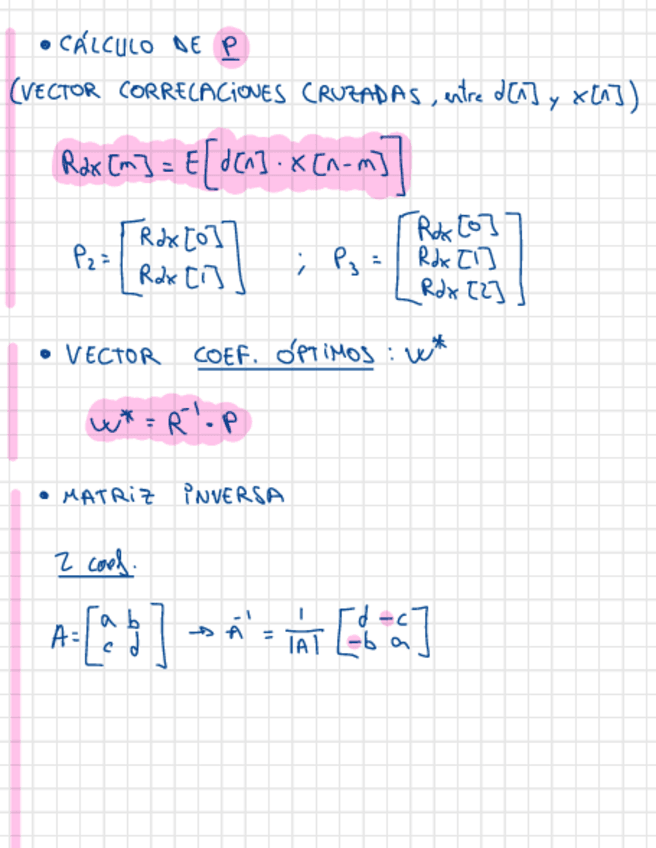 • CÁLCULO DE P
(VECTOR CORRELACIONES CRUZADAS, entre d[n] y x[n])
Rdx[m] = E[d[n] · x[n-m]]
P₂ = [Rdx[0] Rdx[1]] ; P₃ = [Rdx[0] Rdx[1] Rdx[2]]
• VECTOR COEF. ÓPTIMOS : w*
w* = R⁻¹ · P
• MATRIZ INVERSA
2 coef.
A = [a b c d] → A⁻¹ = 1/|A| [d -c -b a]